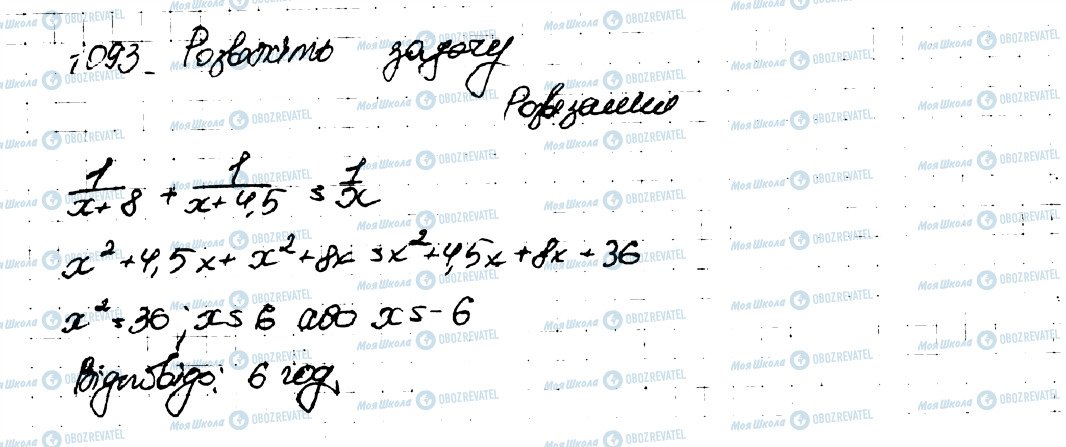 1093. Розв'яжіть задачу
Розв'язання
1/(x+8) + 1/(x+4,5) = 1/x
x² + 4,5x + x² + 8x = x² + 4,5x + 8x + 36
x² = 36; x = 6 або x = -6
Відповідь: 6 год.